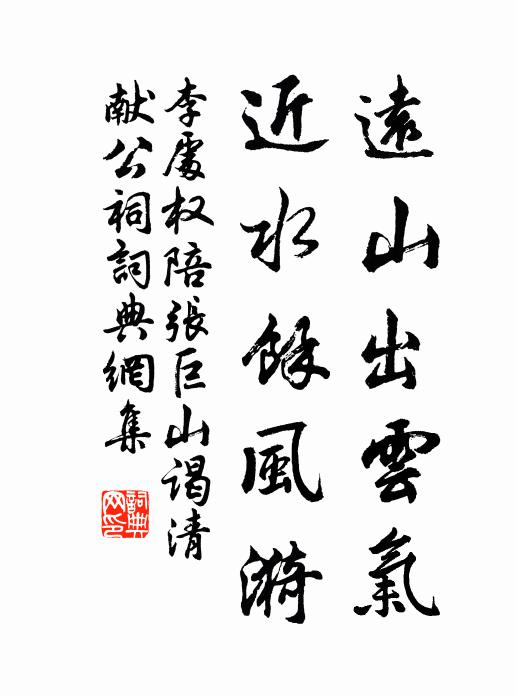 遠山出雲氣
近水餘風漪
李處权陪張巨山謁清
献公祠詞典網集
詞典
网印